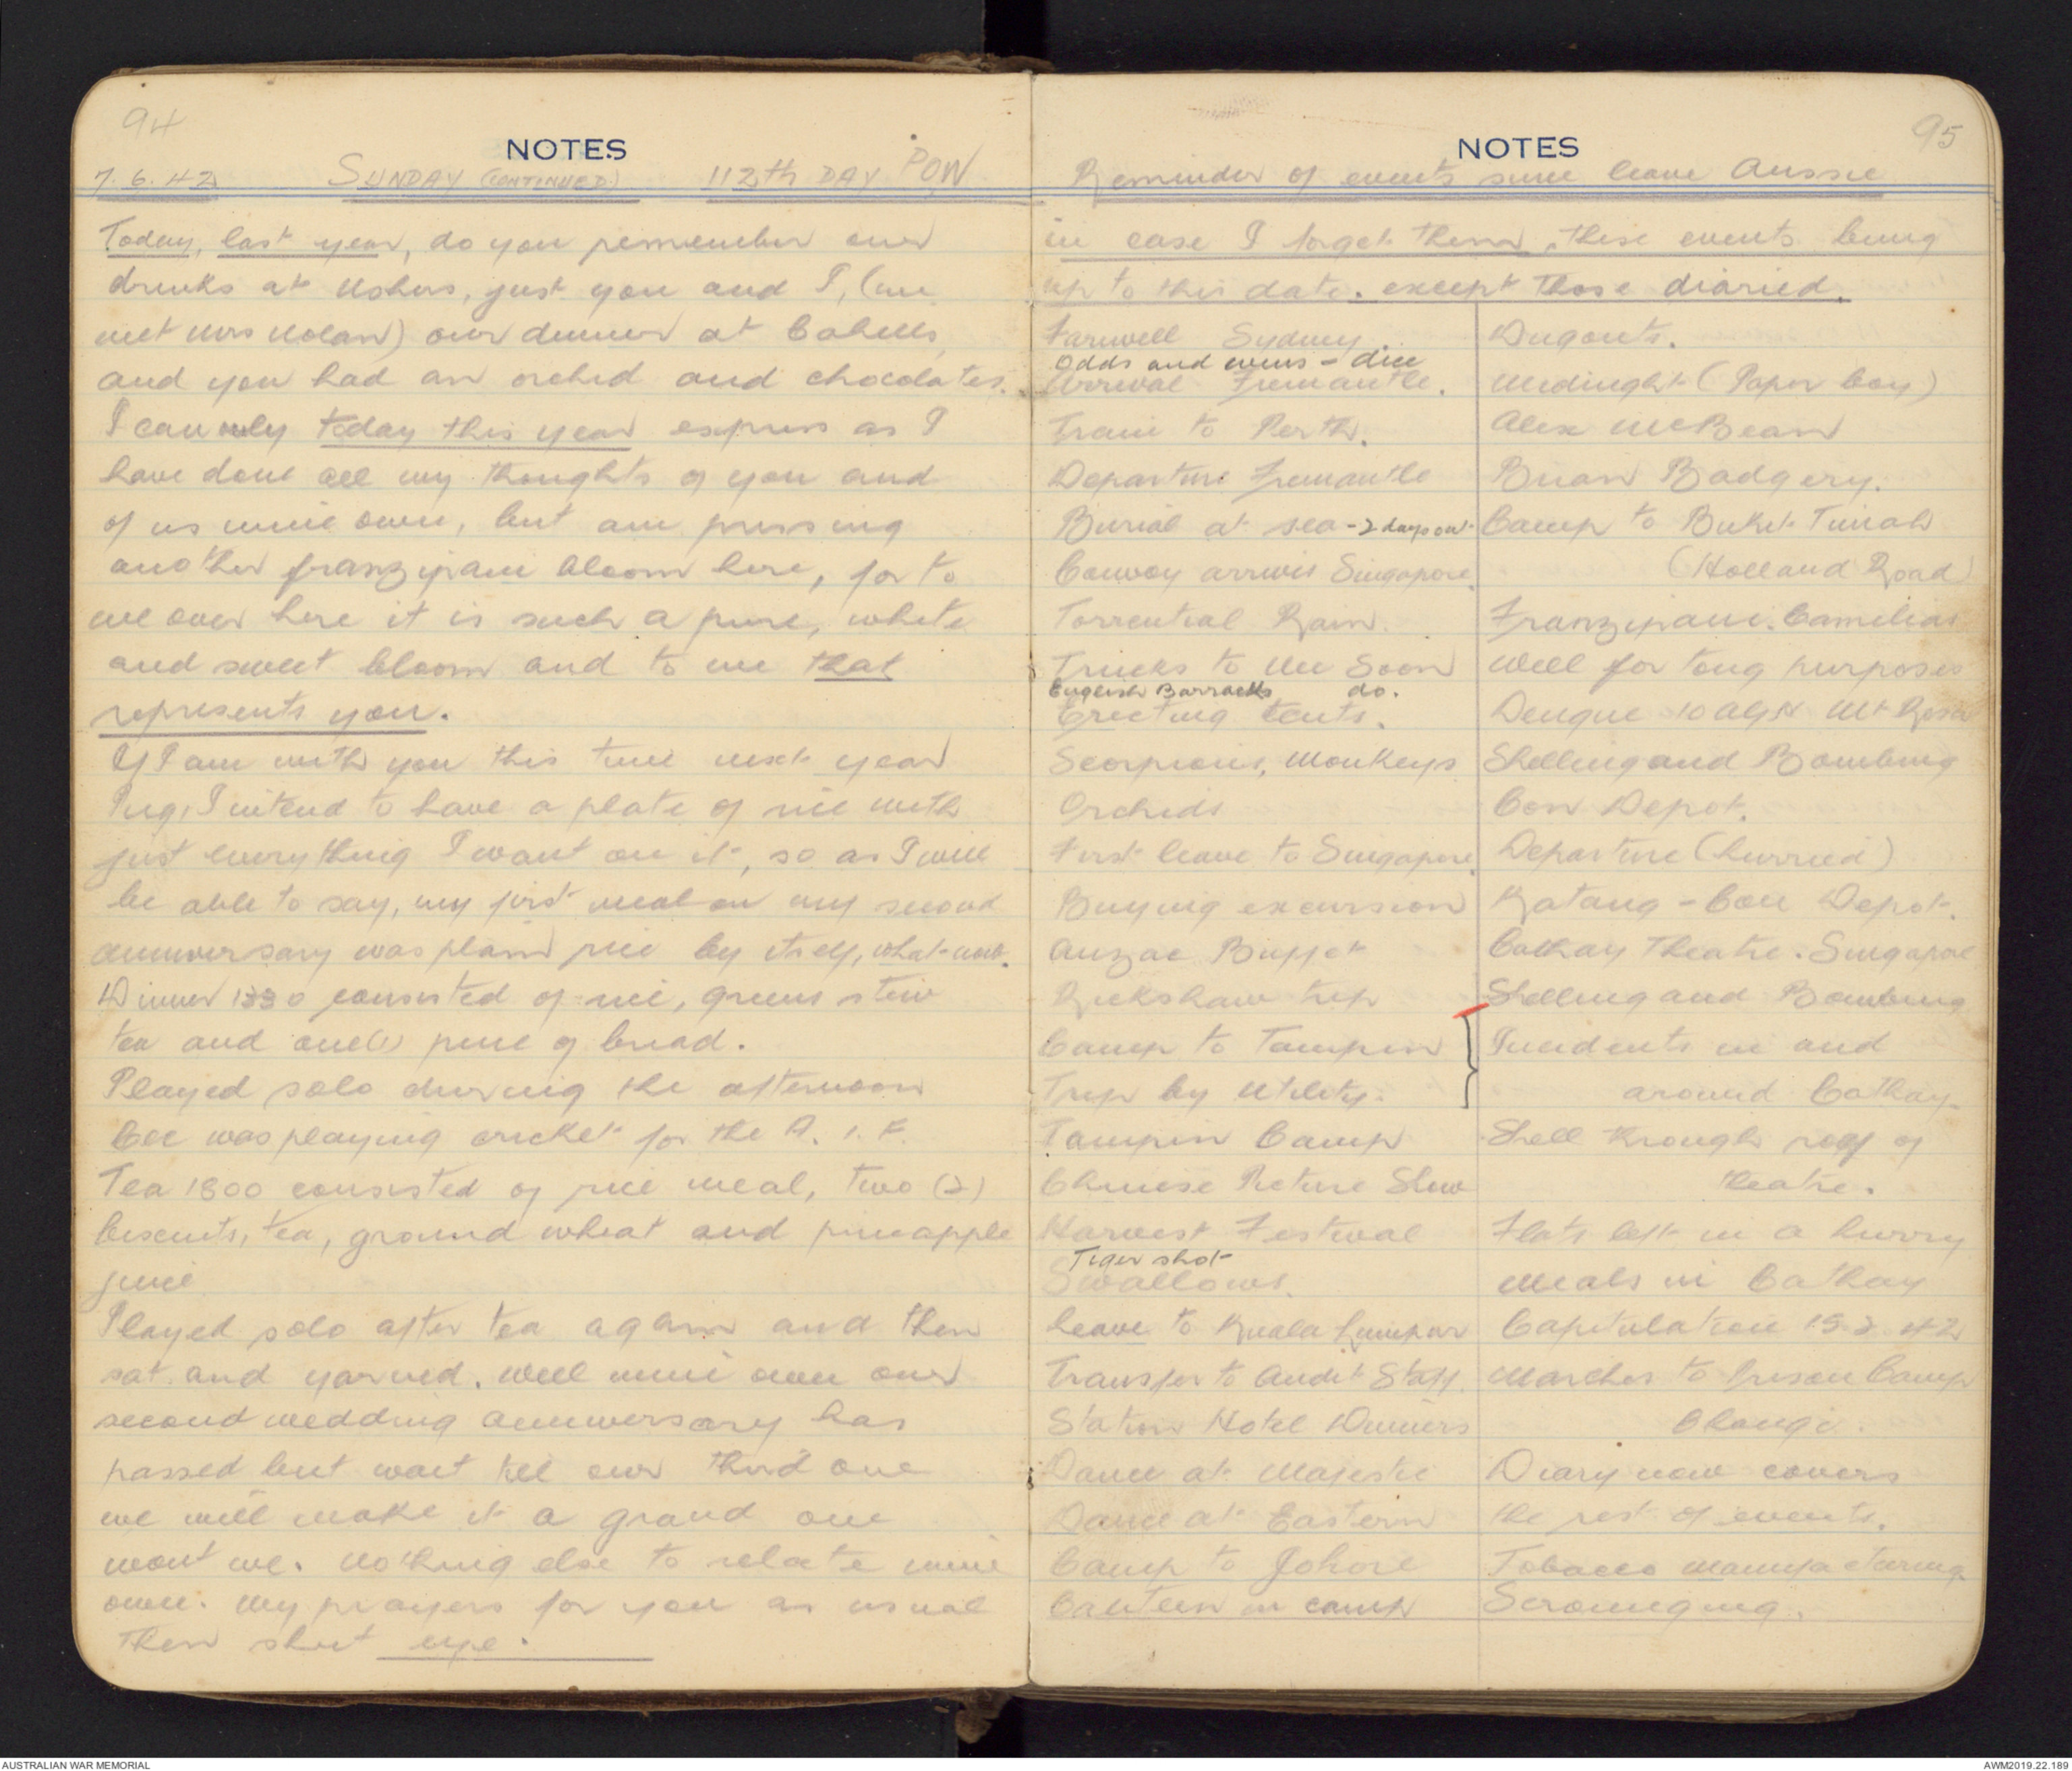 94
NOTES
7.6.42 SUNDAY (CONTINUED) 112th DAY POW
Today, last year, do you remember our
drinks at Ushers, just you and I, (we
met Mrs Nolan) our dinner at Cahills,
and you had an orchid and chocolates.
I can only today this year express as I
have done all my thoughts of you and
of us mine own, but am pressing
another franzipani bloom here, for to
me over here it is such a pure, white
and sweet bloom and to me that
represents you.
If I am with you this time next year
I intend to have a plate of rice with
just everything I want on it, so as I will
be able to say, my first meal on my second
anniversary was plain rice by itself, what-now.
Dinner 1330 consisted of rice, greens stew
tea and one (1) piece of bread.
Played solo during the afternoon
Cec was playing cricket for the A.I.F.
Tea 1800 consisted of rice meal, two (2)
biscuits, tea, ground wheat and pineapple
juice
Played solo after tea again and then
sat and yarned. Well mine own our
second wedding anniversary has
passed but wait till our third one
we will make it a grand one
wont we. Nothing else to relate mine
own. My prayers for you as usual
then shut eye.
95
NOTES
Reminder of events since leave Aussie
in case I forget them, these events being
up to this date. except those diaried.
Farewell Sydney.
Odds and evens - dice
Arrival Fremantle.
Train to Perth.
Departure Fremantle
Burial at sea - 2 days out
Convoy arrives Singapore.
Torrential Rain.
Trucks to Nee Soon
English Barracks do.
Erecting tents.
Scorpions, Monkeys
Orchids
First leave to Singapore.
Buying excursion
Anzac Buffet
Rickshaw trip
Camp to Tampin
Trip by Utility.
Tampin Camp
Chinese Picture Show
Harvest Festival
Tiger shot
Swallows.
Leave to Kuala Lumpur
Transfer to Audit Staff.
Station Hotel Dinners
Dance at Majestic
Dance at Eastern
Camp to Johore
Canteen in camp
Dugouts.
Midinght (Paper boy)
Alex McBean
Brian Badgery.
Camp to Buket Timah
(Holland Road)
Franzipani. Camelias
Well for tong purposes
Dengue 10 AGH Mt Rosa
Shelling and Bombing
Con Depot.
Departure (hurried)
Katang - Con Depot.
Cathay Theatre. Singapore
Shelling and Bombing
Incidents in and
around Cathay.
Shell through roof of
theatre.
Flats left in a hurry
Meals in Cathay
Capitulation 15.2.42
Marches to Prison Camp
Changi.
Diary now covers
the rest of events.
Tobacco manufacturing
Scrounging.
AUSTRALIAN WAR MEMORIAL
AWM2019.22.189